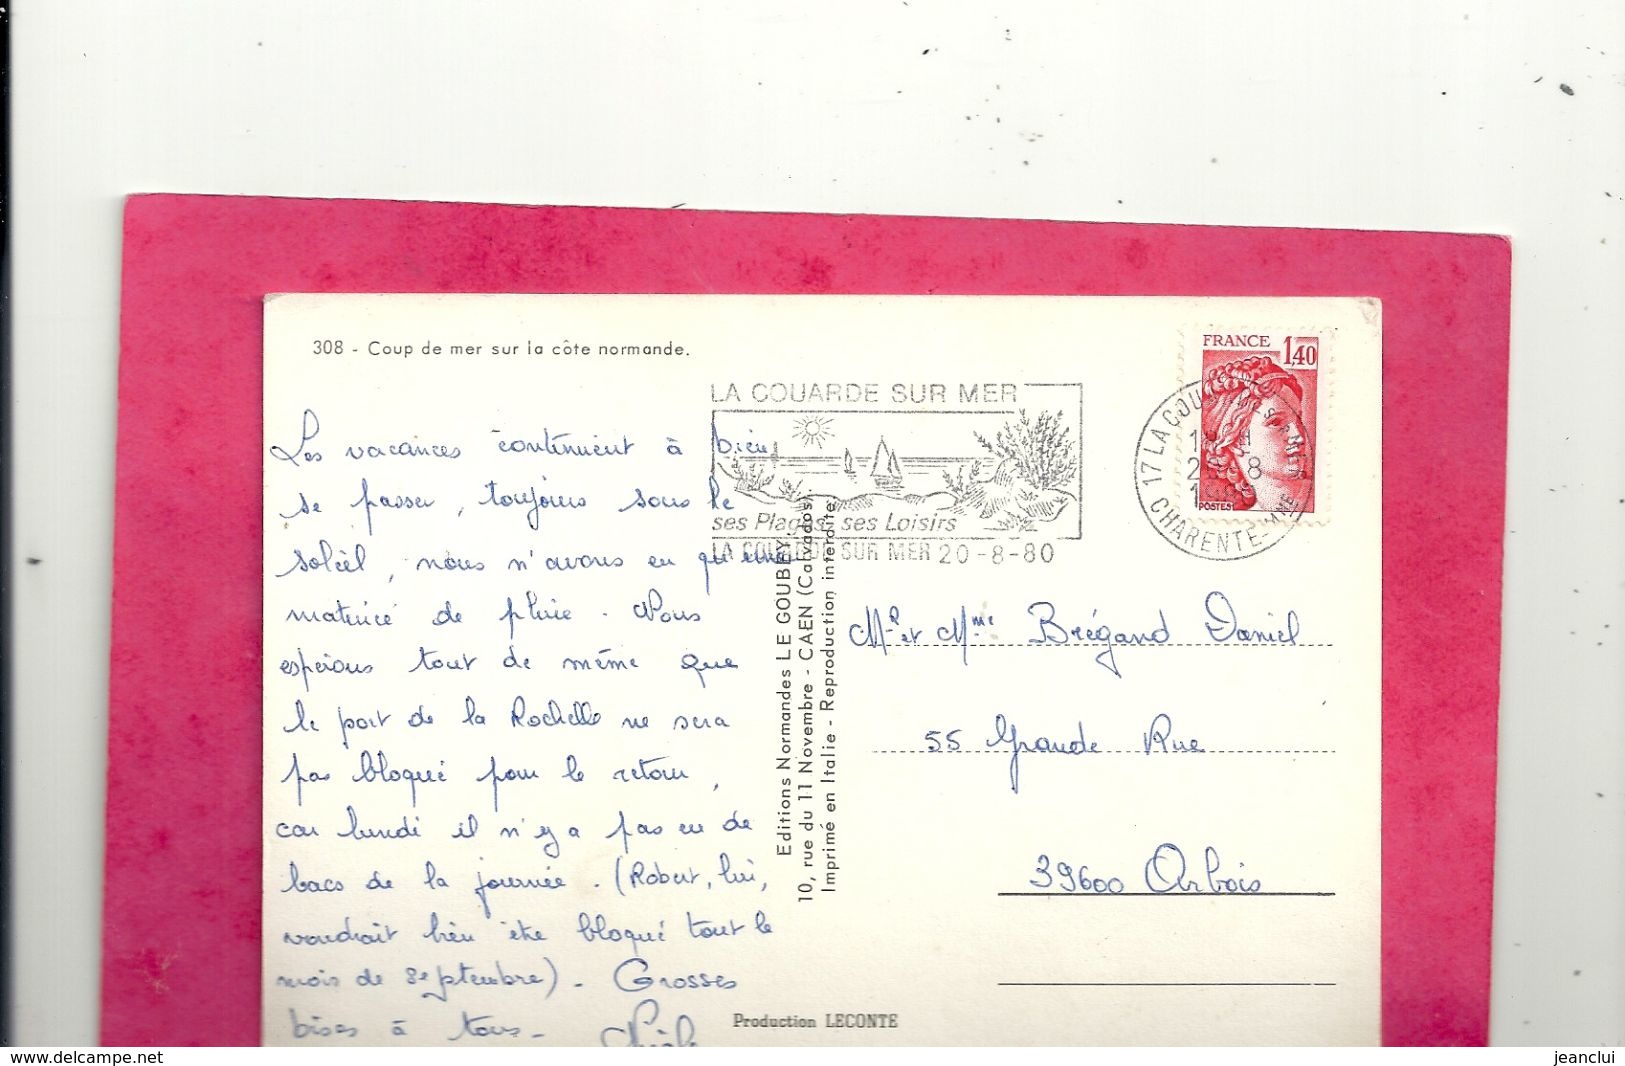 308 - Coup de mer sur la côte normande.
FRANCE 1,40
POSTES
LA COUARDE SUR MER
ses Plages, ses Loisirs
LA COUARDE SUR MER 20-8-80
17 LA COUARDE S/ MER
CHARENTE-MME
Les vacances continuent à bien
se passer, toujours sous le
soleil, nous n'avons eu qu'une
matinée de pluie. Nous
espérons tout de même que
le port de la Rochelle ne sera
pas bloqué pour le retour,
car lundi il n'y a pas eu de
bacs de la journée. (Robert, lui,
voudrait bien être bloqué tout le
mois de septembre). Grosses
bises à tous -
Editions Normandes LE GOUBEY
10, rue du 11 Novembre - CAEN (Calvados)
Imprimé en Italie - Reproduction interdite
Mr et Mme Brégand Daniel
55 Grande Rue
39600 Arbois
Production LECONTE
www.delcampe.net
jeanclui